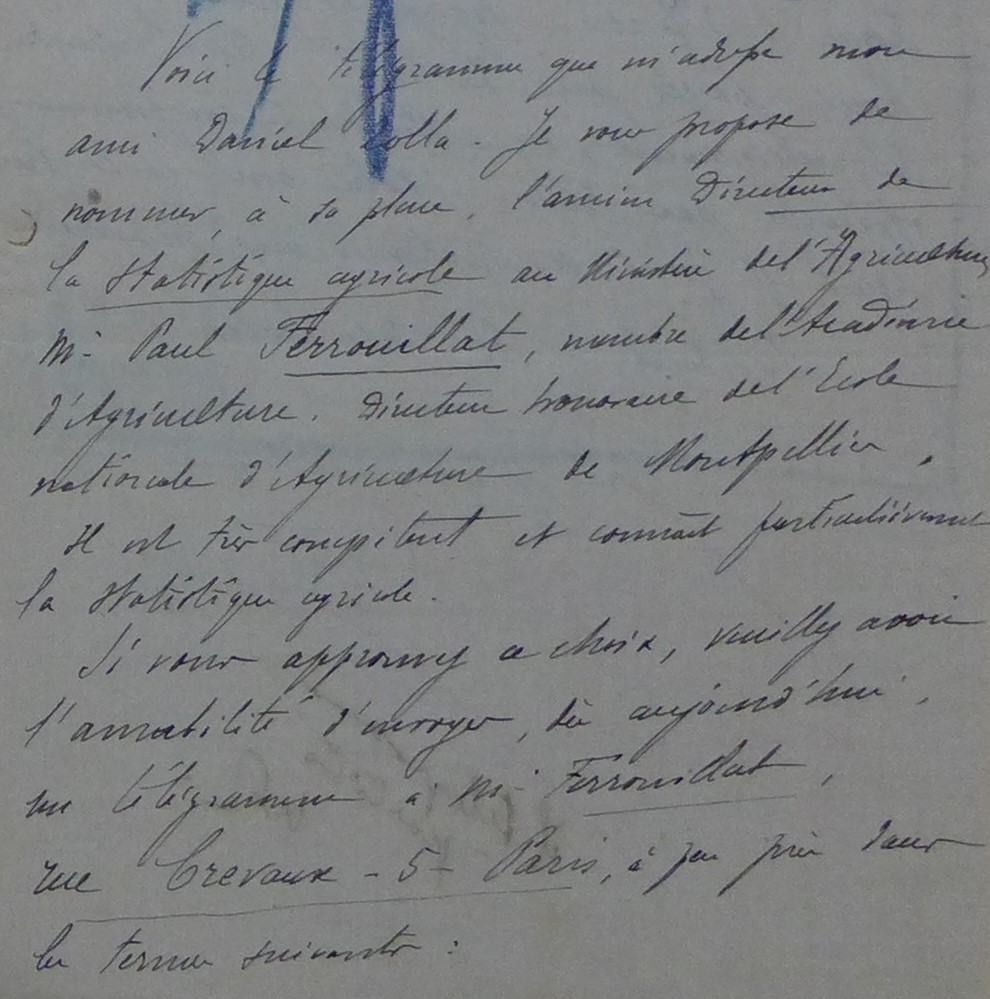 Voici le télégramme que m'adresse mon
ami Daniel Zolla. Je vous propose de
nommer, à sa place, l'ancien Directeur de
la Statistique agricole au Ministère de l'Agriculture,
M. Paul Ferrouillat, membre de l'Académie
d'Agriculture. Directeur honoraire de l'Ecole
nationale d'Agriculture de Montpellier,
Il est très compétent et connaît particulièrement
la Statistique agricole.
Si vous approuvez ce choix, veuillez avoir
l'amabilité d'envoyer, dès aujourd'hui,
un télégramme à M. Ferrouillat,
rue Crevaux - 5 - Paris, à peu près dans
les termes suivants :